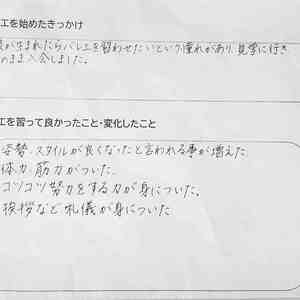 工を始めたきっかけ
が生まれたらバレエを習わせたいという憧れがあり、見学に行き
のまま入会しました。
エを習って良かったこと・変化したこと
姿勢、スタイルが良くなったと言われる事が増えた。
体力、筋力がついた。
コツコツ努力をする力が身についた。
挨拶など礼儀が身についた